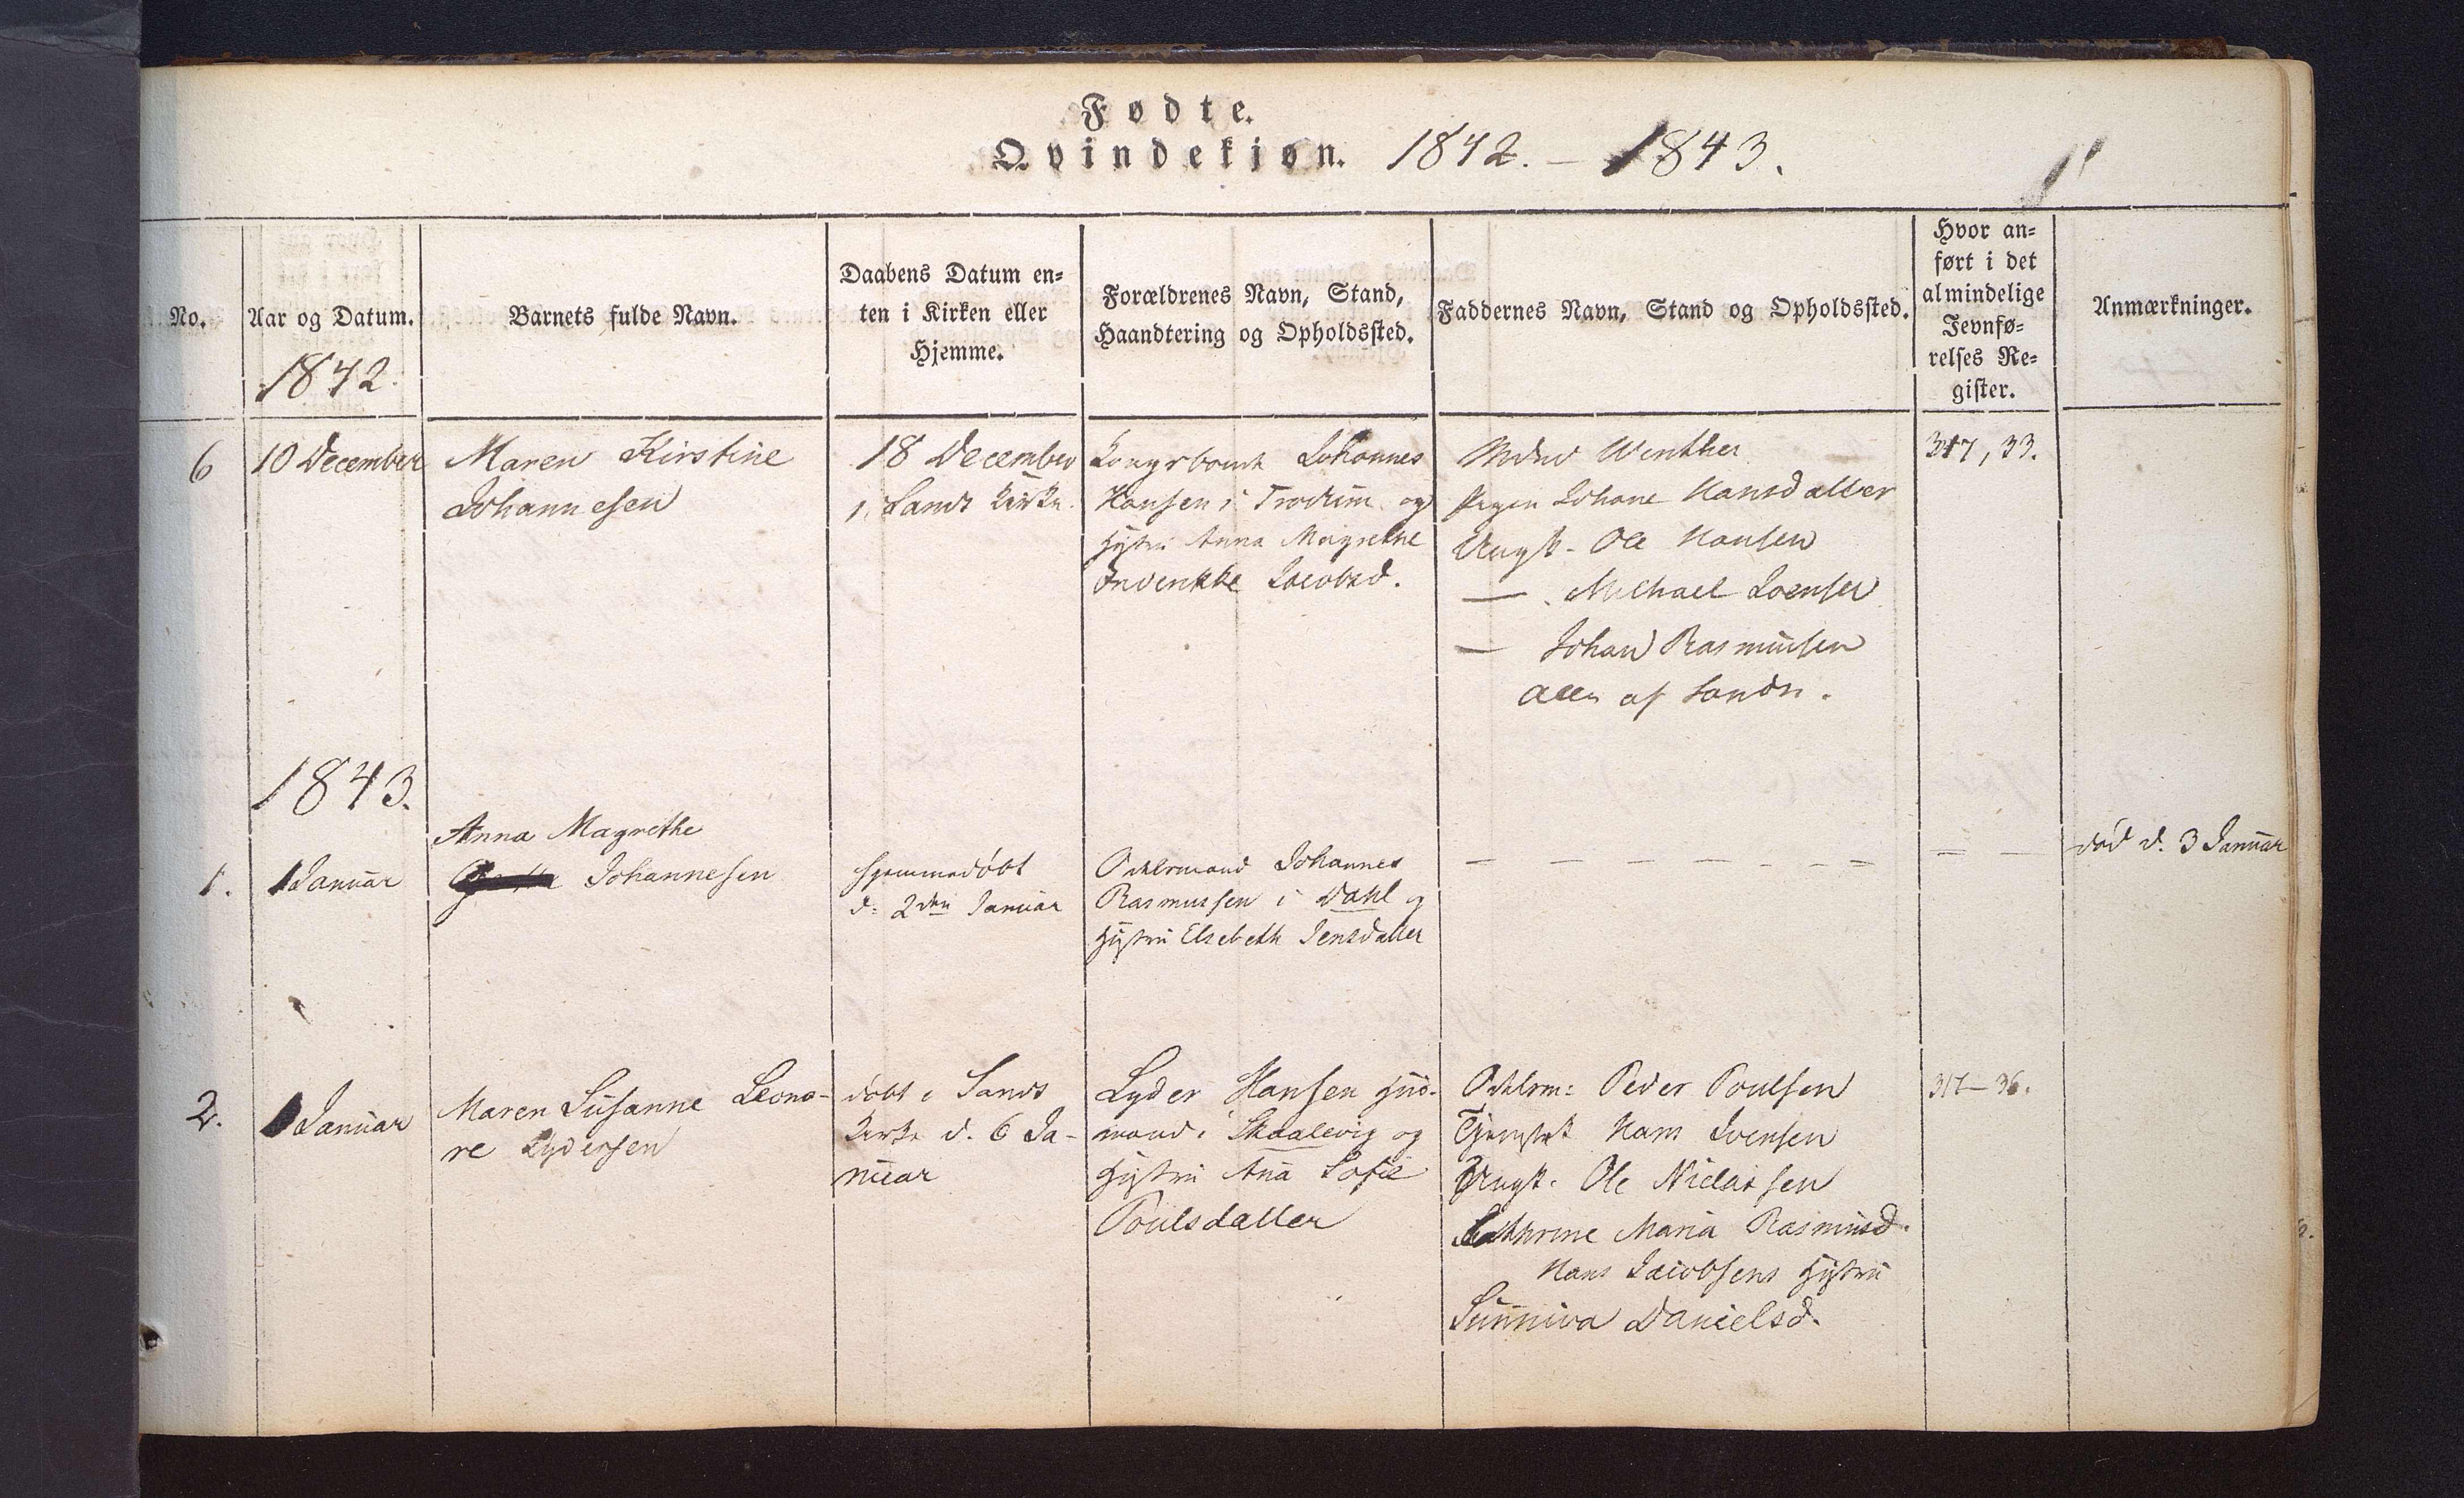 Fødte.
Qvindekjøn. 1842. — 1843.
No.
Aar og Datum.
1842.
Barnets fulde Navn.
Daabens Datum en-
ten i Kirken eller
Hjemme.
Forældrenes Navn, Stand,
Haandtering og Opholdssted.
Faddernes Navn, Stand og Opholdssted.
Hvor an-
ført i det
almindelige
Jevnfø-
relses Re-
gister.
Anmærkninger.
6
10 December
Maren Kirstine
Johannesen
18 December
i Sands Kirke.
Kongsbonde Johannes
Hansen i Trødum og
Hystru Anna Magrethe
Jacobsd.
Winther
Pigen Johane Hansdatter
Ungk. Ole Hansen
— Michael Joensen
— Johan Rasmussen
alle af Sande.
317, 33.
1843.
1.
1 Januar
Anna Magrethe
Johannesen
Hjemmedøbt
d. 2den Januar
Odelsmand Johannes
Rasmussen i Dahl og
Hystru Elsebeth Jensdatter
— — — — — — — —
— — —
død d. 3 Januar
2.
Januar
Maren Susanne Leono-
re Lydersen
døbt i Sands
Kirke d. 6 Ja-
nuar
Lyder Hansen Huus-
mand i Skaalevig og
Hystru Ana Sofie
Poulsdatter
Odelsm: Peder Poulsen
Tjenestek Hans Joensen
Ungk. Ole Niclassen
Cathrine Maria Rasmusd.
Hans Jacobsens Hystru
Sunniva Danielsd.
317—36.